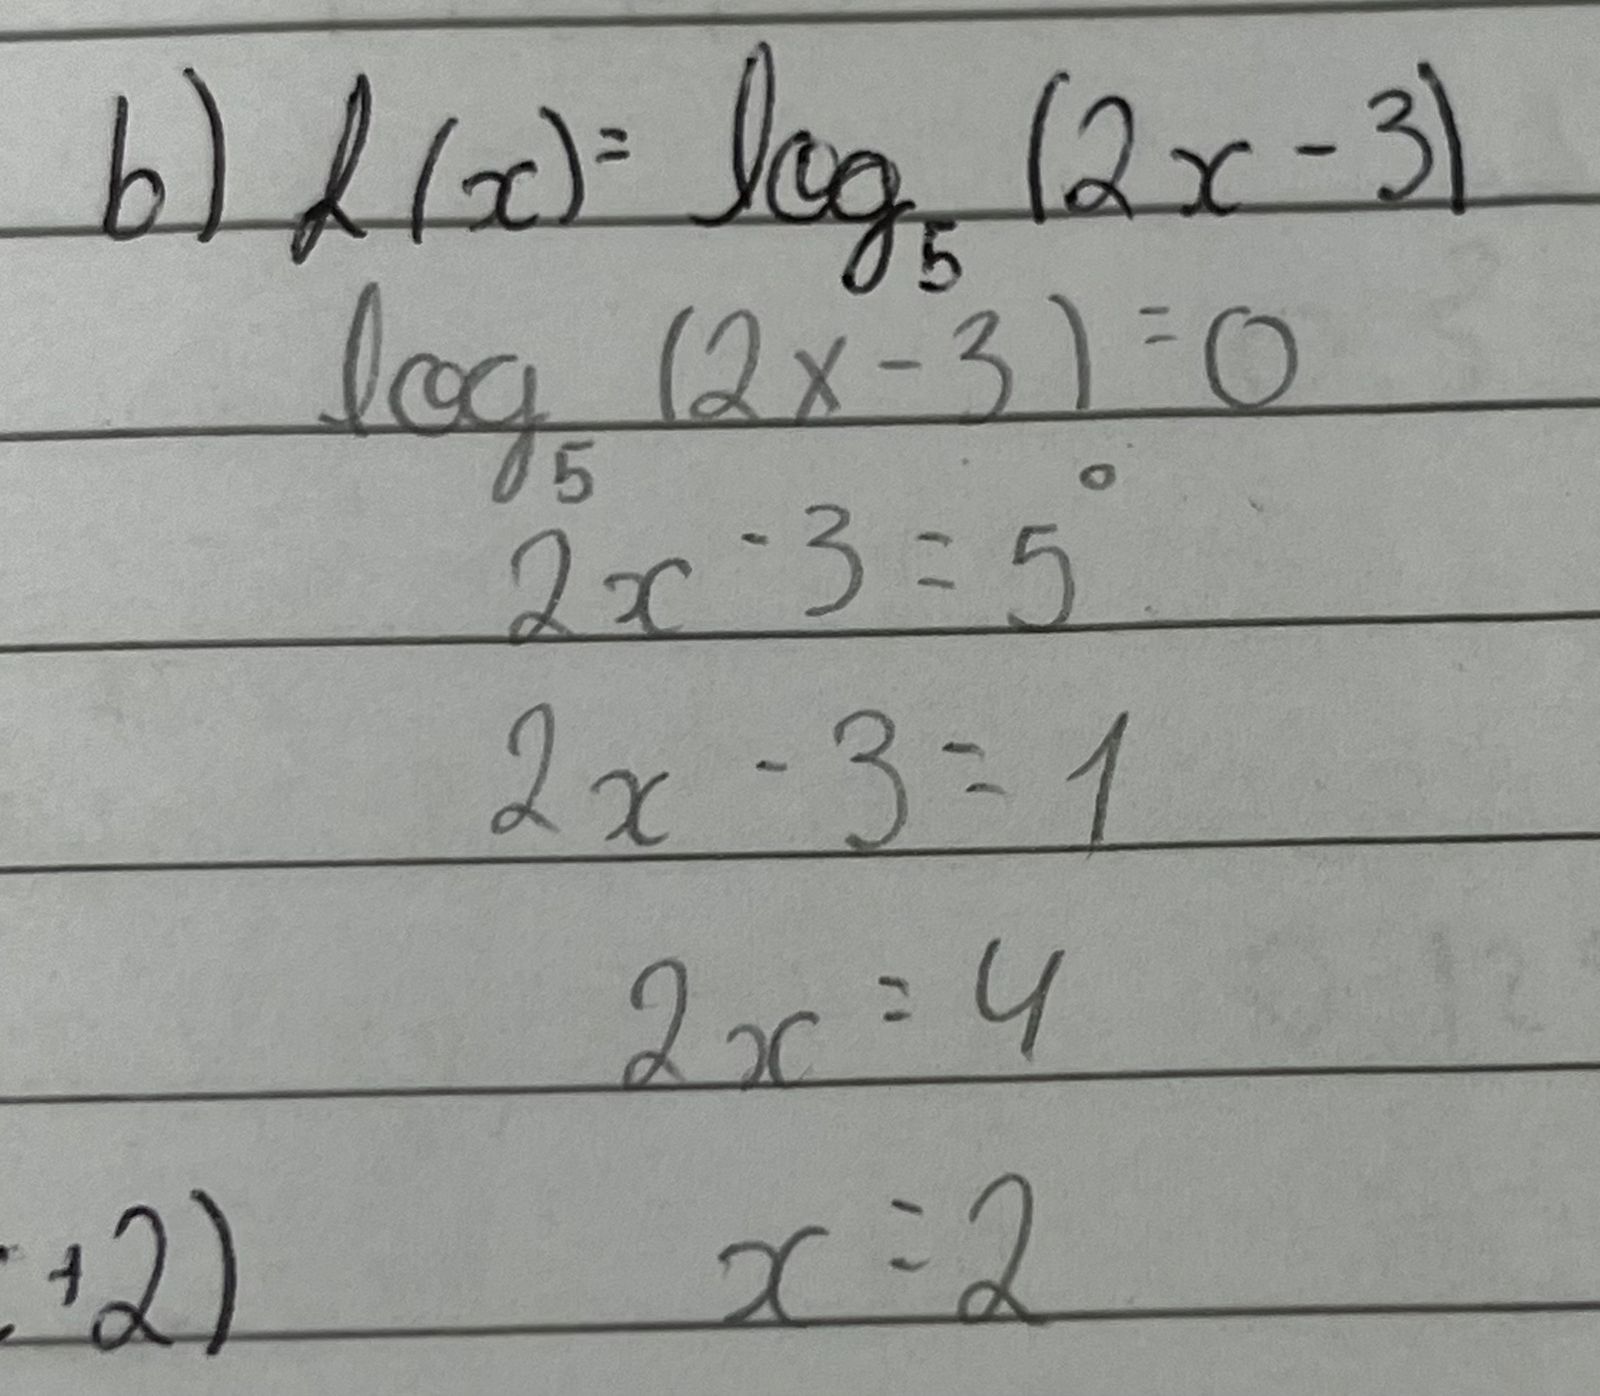 b) f(x) = log₅ (2x - 3)
log₅ (2x - 3) = 0
2x - 3 = 5⁰
2x - 3 = 1
2x = 4
+2) x = 2